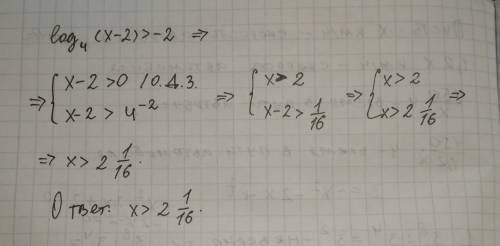 log₄ (x-2) > -2 ⇒
⇒ { x-2 > 0 /О.Д.З. x-2 > 4⁻² ⇒ { x > 2 x-2 > 1/16 ⇒ { x > 2 x > 2 1/16 ⇒
⇒ x > 2 1/16.
Ответ: x > 2 1/16.